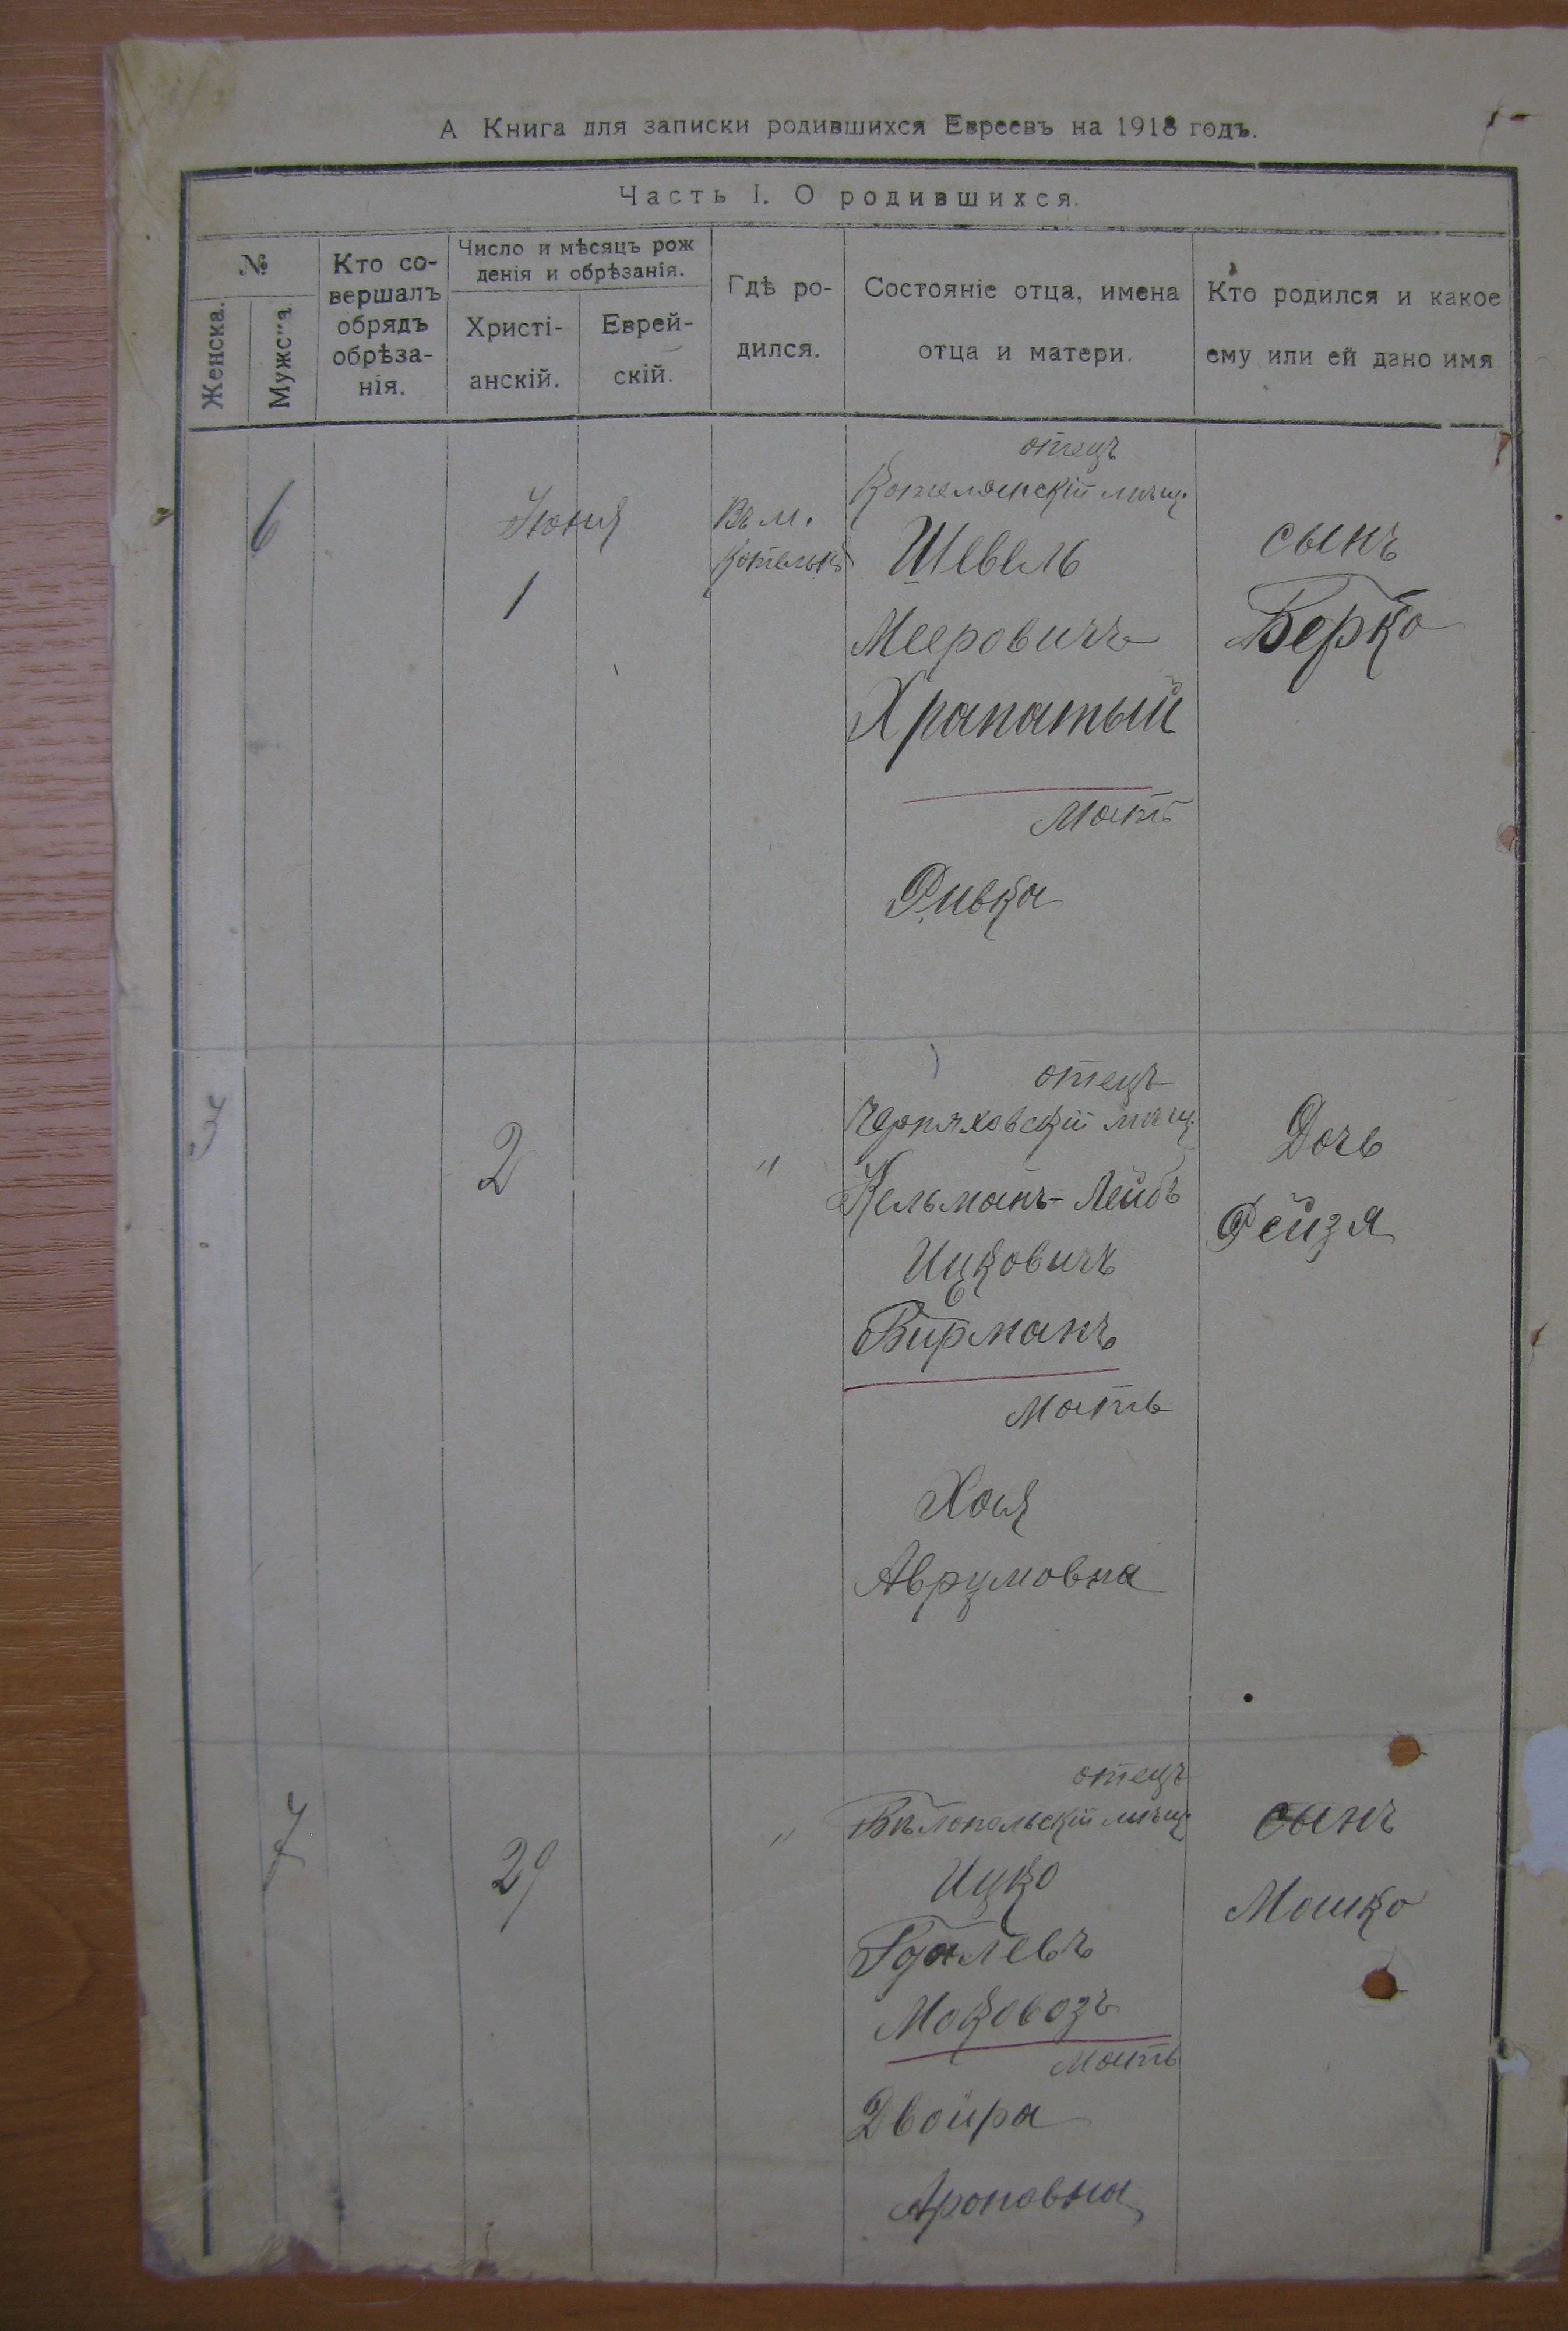 А Книга для записки родившихся Евреевъ на 1918 годъ.
Часть I. О родившихся.
№
Женска.
Мужска
Кто со-
вершалъ
обрядъ
обрѣза-
нія.
Число и мѣсяцъ рож
денія и обрѣзанія.
Христі-
анскій.
Еврей-
скій.
Гдѣ ро-
дился.
Состояніе отца, имена
отца и матери.
Кто родился и какое
ему или ей дано имя
6
Іюня
1
Въ м.
Котельнѣ
отецъ
Котелянскій мѣщ.
Шевель
Мееровичъ
Храпатый
Мать
Ривка
сынъ
Берко
3
2
"
отецъ
Черняховскій мѣщ.
Кельманъ-Лейбъ
Ицковичъ
Бирманъ
Мать
Хая
Аврумовна
Дочь
Рейзя
7
29
"
отецъ
Бѣлопольскій мѣщ.
Ицко
Моковозъ
Мать
Двойра
Ароновна
сынъ
Мошко